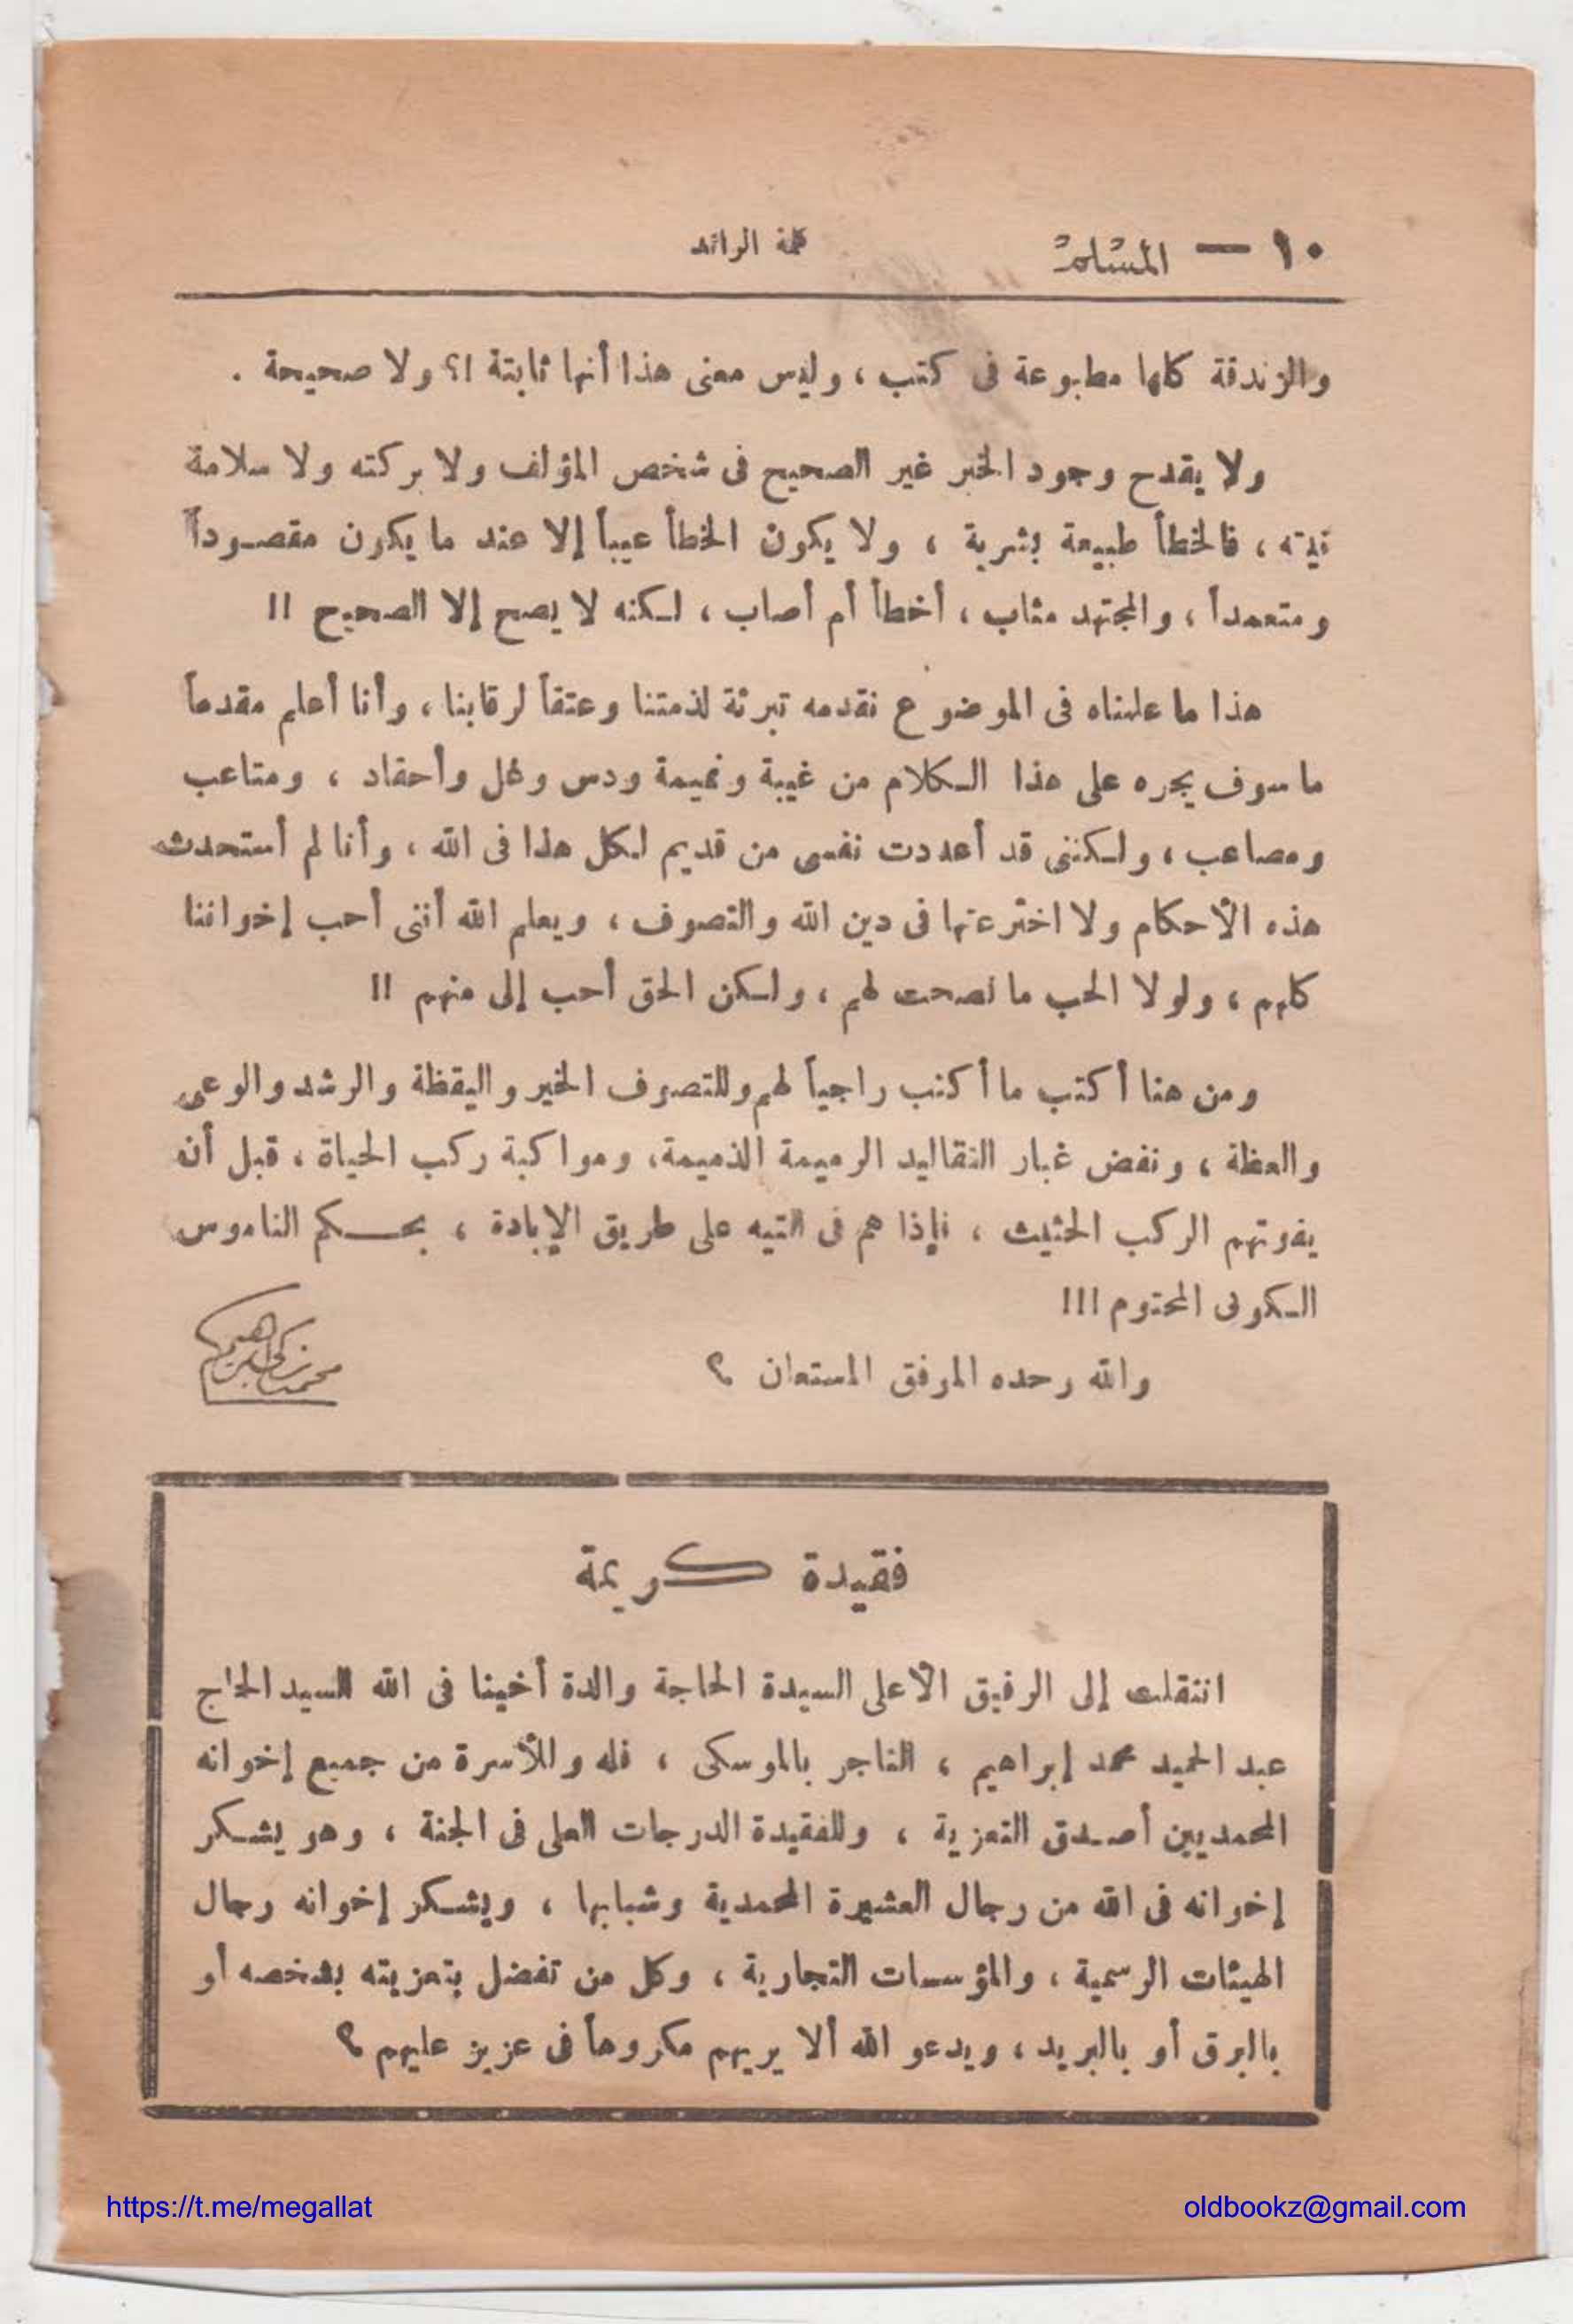 ١٠ — المسلم
كلمة الرائد
والزندقة كلها مطبوعة فى كتب ، وليس معنى هذا أنها ثابتة ا؟ ولا صحيحة .
ولا يقدح وجود الخبر غير الصحيح فى شخص المؤلف ولا بركته ولا سلامة
نيته ، فالخطأ طبيعة بشرية ، ولا يكون الخطأ عيباً إلا عند ما يكون مقصوداً
ومتعمداً ، والمجتهد مثاب ، أخطأ أم أصاب ، لكنه لا يصح إلا الصحيح !!
هذا ما علمناه فى الموضوع نقدمه تبرئة لذمتنا وعتقاً لرقابنا ، وأنا أعلم مقدماً
ما سوف يجره على هذا الكلام من غيبة ونميمة ودس وغل وأحقاد ، ومتاعب
ومصاعب ، ولكننى قد أعددت نفسى من قديم لكل هذا فى الله ، وأنا لم أستحدث
هذه الأحكام ولا اخترعتها فى دين الله والتصوف ، ويعلم الله أننى أحب إخواننا
كلهم ، ولولا الحب ما نصحت لهم ، ولكن الحق أحب إلى منهم !!
ومن هنا أكتب ما أكتب راجياً لهم وللتصوف الخير واليقظة والرشد والوعى
والعظة ، ونفض غبار التقاليد الرميمة الذميمة، ومواكبة ركب الحياة ، قبل أن
يفوتهم الركب الحثيث ، فإذا هم فى التيه على طريق الإبادة ، بحكم الناموس
الكونى المحتوم !!!
والله وحده الموفق المستعان ؟
محمد زكى إبراهيم
فقيدة كريمة
انتقلت إلى الرفيق الأعلى السيدة الحاجة والدة أخينا فى الله السيد الحاج
عبد الحميد محمد إبراهيم ، التاجر بالموسكى ، فله وللأسرة من جميع إخوانه
المحمديين أصدق التعزية ، وللفقيدة الدرجات العلى فى الجنة ، وهو يشكر
إخوانه فى الله من رجال العشيرة المحمدية وشبابها ، ويشكر إخوانه رجال
الهيئات الرسمية ، والمؤسسات التجارية ، وكل من تفضل بتعزيته بشخصه أو
بالبرق أو بالبريد ، ويدعو الله ألا يريهم مكروهاً فى عزيز عليهم ؟
https://t.me/megallat
oldbookz@gmail.com